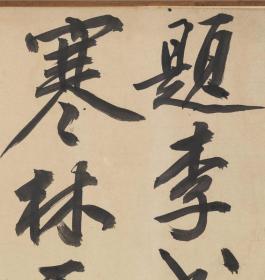 題李
寒林